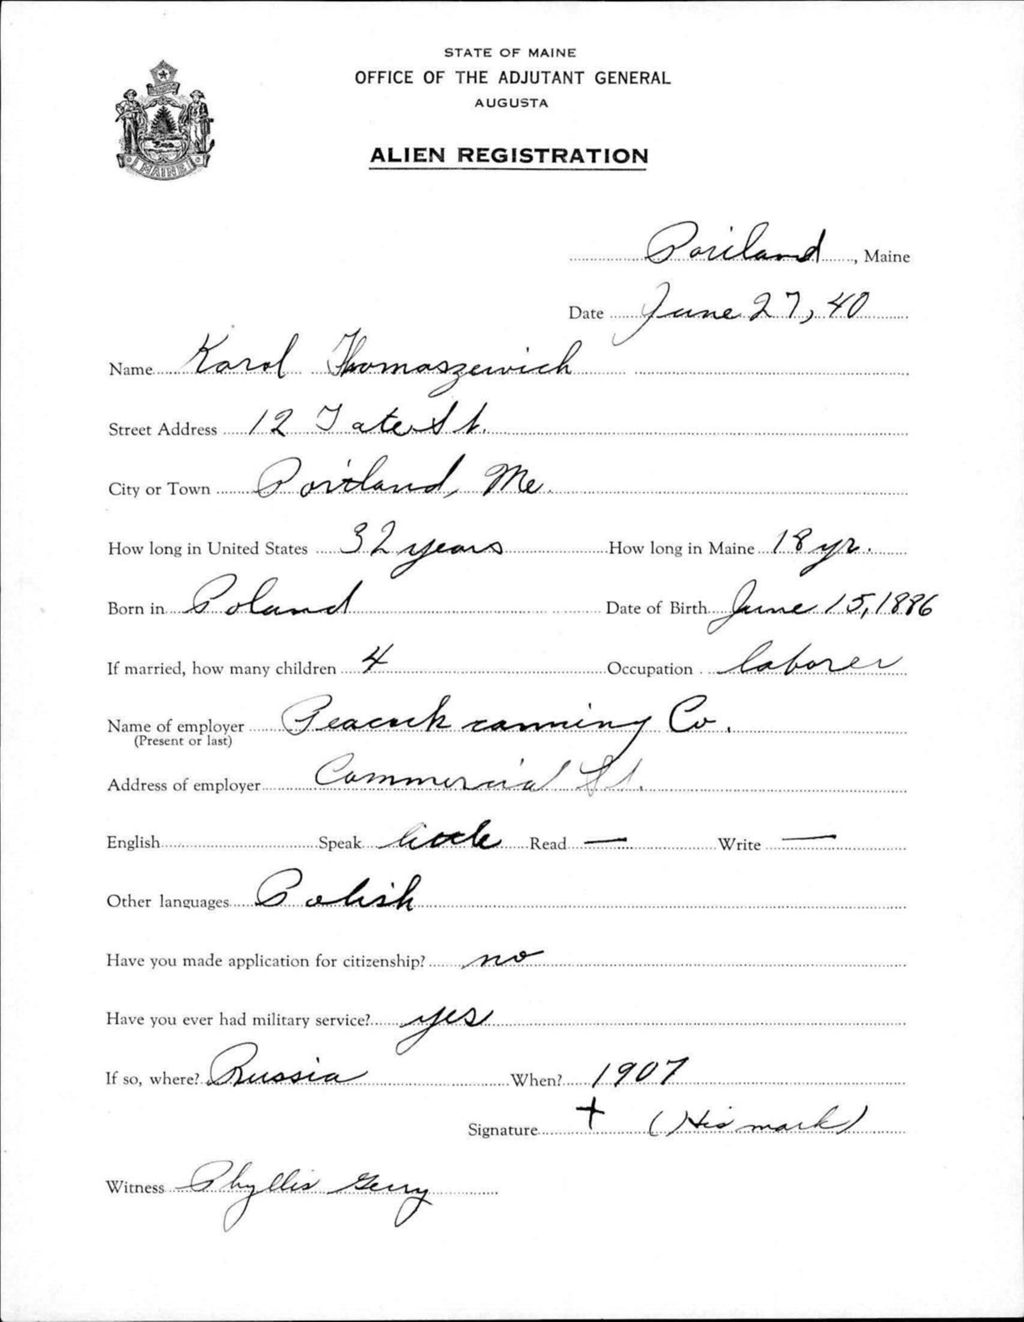 STATE OF MAINE
OFFICE OF THE ADJUTANT GENERAL
AUGUSTA
ALIEN REGISTRATION
MAINE
Portland, Maine
Date June 27, 40
Name Karol Thomaszewich
Street Address 12 Tate St.
City or Town Portland, Me.
How long in United States 32 years How long in Maine 18 yr.
Born in Poland Date of Birth June 15, 1886
If married, how many children 4 Occupation laborer
Name of employer Peacock canning Co.
(Present or last)
Address of employer Commercial St.
English Speak little Read — Write —
Other languages Polish
Have you made application for citizenship? no
Have you ever had military service? yes
If so, where? Russia When? 1907
Signature + (His mark)
Witness Phyllis Gerry